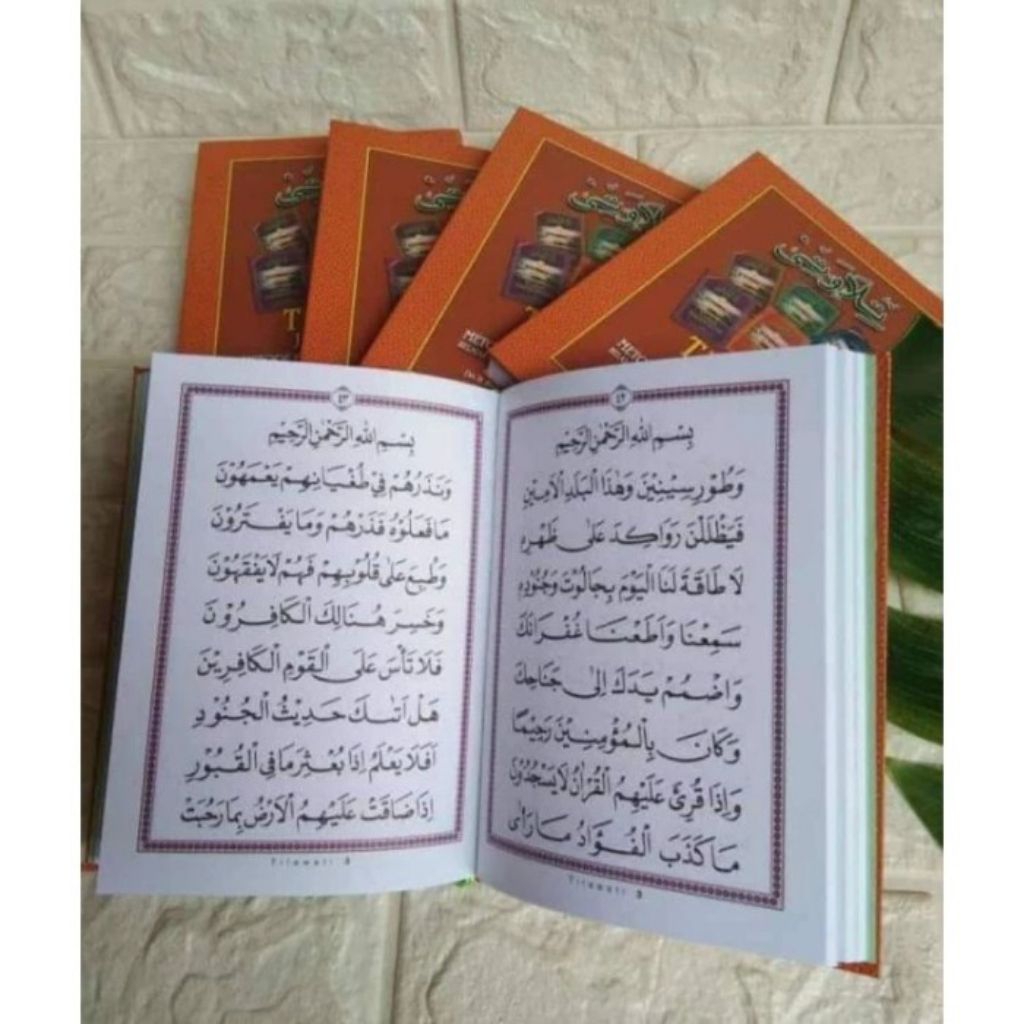 تلاوتي
٤٢
بِسْمِ اللهِ الرَّحْمٰنِ الرَّحِيْمِ
وَطُوْرِ سِيْنِيْنَ وَهٰذَا الْبَلَدِ الْاَمِيْنِ
فَيَظْلَلْنَ رَوَاكِدَ عَلٰى ظَهْرِهِ
لَا طَاقَةَ لَنَا الْيَوْمَ بِجَالُوْتَ وَجُنُوْدِهِ
سَمِعْنَا وَاَطَعْنَا غُفْرَانَكَ
وَاضْمُمْ يَدَكَ اِلٰى جَنَاحِكَ
وَكَانَ بِالْمُؤْمِنِيْنَ رَحِيْمًا
وَاِذَا قُرِئَ عَلَيْهِمُ الْقُرْاٰنُ لَا يَسْجُدُوْنَ
مَا كَذَبَ الْفُؤَادُ مَا رَاٰى
Tilawati 3
٤٣
بِسْمِ اللهِ الرَّحْمٰنِ الرَّحِيْمِ
وَنَذَرُهُمْ فِيْ طُغْيَانِهِمْ يَعْمَهُوْنَ
مَا فَعَلُوْهُ فَذَرْهُمْ وَمَا يَفْتَرُوْنَ
وَطُبِعَ عَلٰى قُلُوْبِهِمْ فَهُمْ لَا يَفْقَهُوْنَ
وَخَسِرَ هُنَالِكَ الْكَافِرُوْنَ
فَلَا تَأْسَ عَلَى الْقَوْمِ الْكَافِرِيْنَ
هَلْ اَتٰىكَ حَدِيْثُ الْجُنُوْدِ
اَفَلَا يَعْلَمُ اِذَا بُعْثِرَ مَا فِي الْقُبُوْرِ
اِذَا ضَاقَتْ عَلَيْهِمُ الْاَرْضُ بِمَا رَحُبَتْ
Tilawati 3